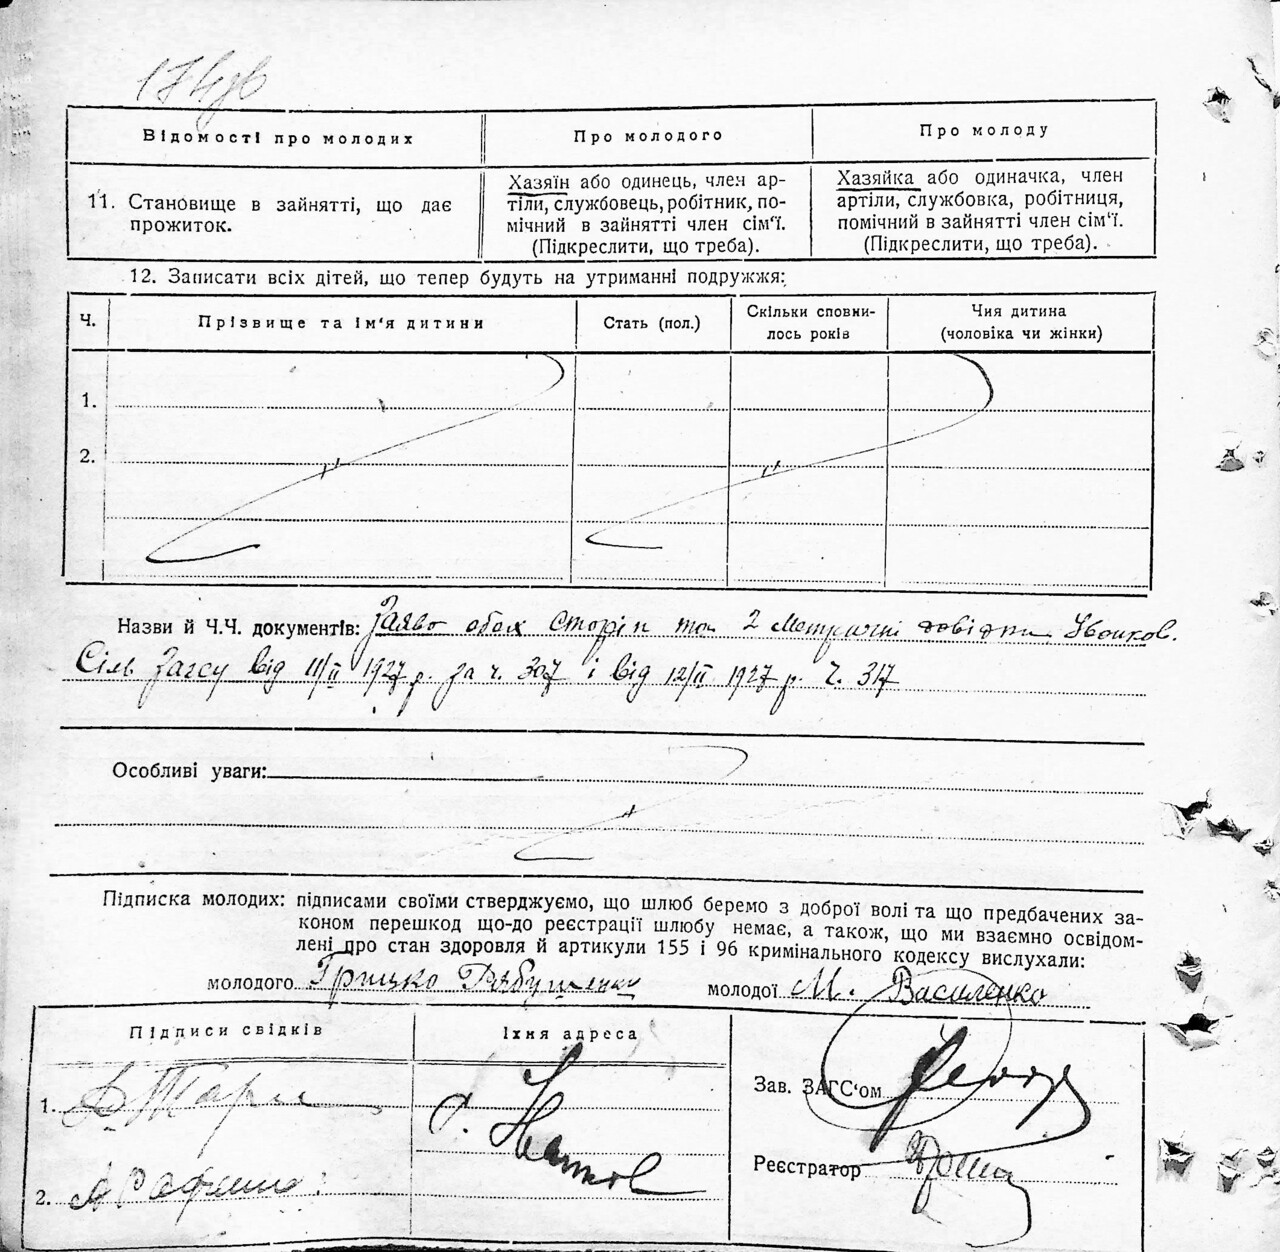 174зв
Відомості про молодих
Про молодого
Про молоду
11. Становище в зайнятті, що дає
прожиток.
Хазяїн або одинець, член ар-
тіли, службовець, робітник, по-
мічний в зайнятті член сім'ї.
(Підкреслити, що треба).
Хазяйка або одиначка, член
артіли, службовка, робітниця,
помічний в зайнятті член сім'ї.
(Підкреслити, що треба).
12. Записати всіх дітей, що тепер будуть на утриманні подружжя:
Ч.
Прізвище та ім'я дитини
Стать (пол.)
Скільки сповни-
лось років
Чия дитина
(чоловіка чи жінки)
1.
2.
Назви й Ч.Ч. документів: Заява обох сторін та 2 Метричні довідки
Сіль Загсу від 11/II 1927 р. за ч. 307 і від 12/II 1927 р. Ч. 317
Особливі уваги:
Підписка молодих: підписами своїми стверджуємо, що шлюб беремо з доброї волі та що предбачених за-
коном перешкод що-до реєстрації шлюбу немає, а також, що ми взаємно освідом-
лені про стан здоровля й артикули 155 і 96 кримінального кодексу вислухали:
молодого Грицко Рябушенко молодої М. Василенко
Підписи свідків
Їхня адреса
1.
2.
с.
Зав. ЗАГС'ом
Реєстратор